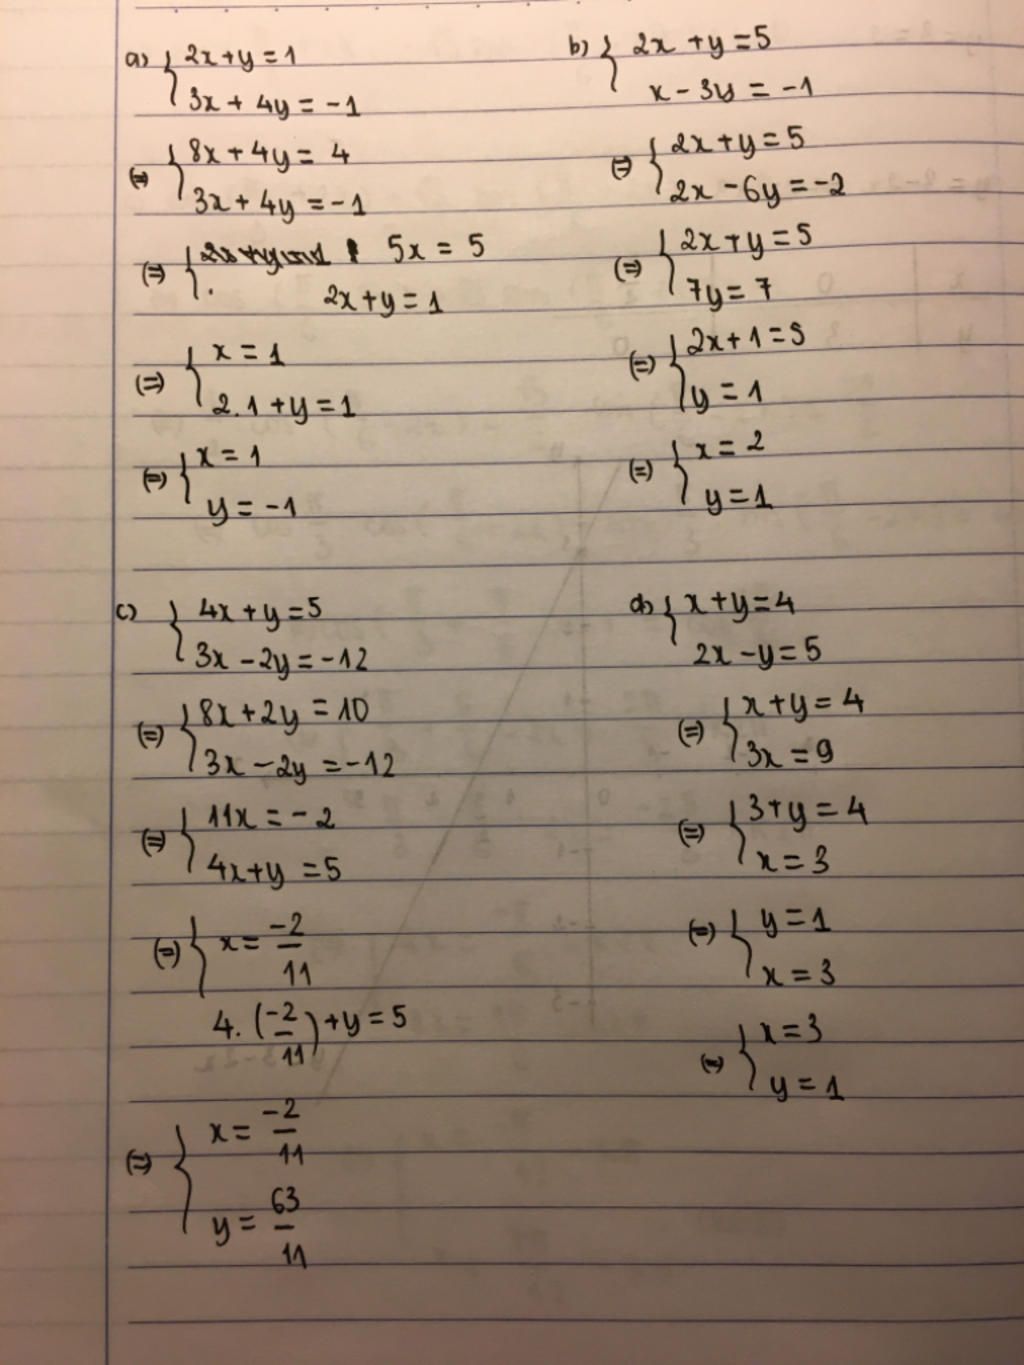 a) { 2x + y = 1
3x + 4y = -1
(=) { 8x + 4y = 4
3x + 4y = -1
(=) { 5x = 5
2x + y = 1
(=) { x = 1
2.1 + y = 1
(=) { x = 1
y = -1
b) { 2x + y = 5
x - 3y = -1
(=) { 2x + y = 5
2x - 6y = -2
(=) { 2x + y = 5
7y = 7
(=) { 2x + 1 = 5
y = 1
(=) { x = 2
y = 1
c) { 4x + y = 5
3x - 2y = -12
(=) { 8x + 2y = 10
3x - 2y = -12
(=) { 11x = -2
4x + y = 5
(=) { x = -2/11
4. (-2/11) + y = 5
(=) { x = -2/11
y = 63/11
d) { x + y = 4
2x - y = 5
(=) { x + y = 4
3x = 9
(=) { 3 + y = 4
x = 3
(=) { y = 1
x = 3
(=) { x = 3
y = 1